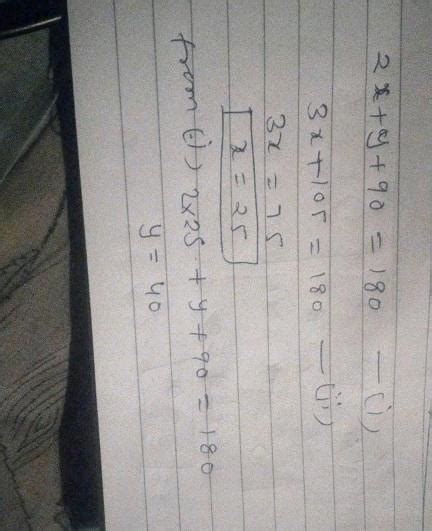 2x + y + 90 = 180 — (i)
3x + 105 = 180 — (ii)
3x = 75
x = 25
from (i) 2x25 + y + 90 = 180
y = 40